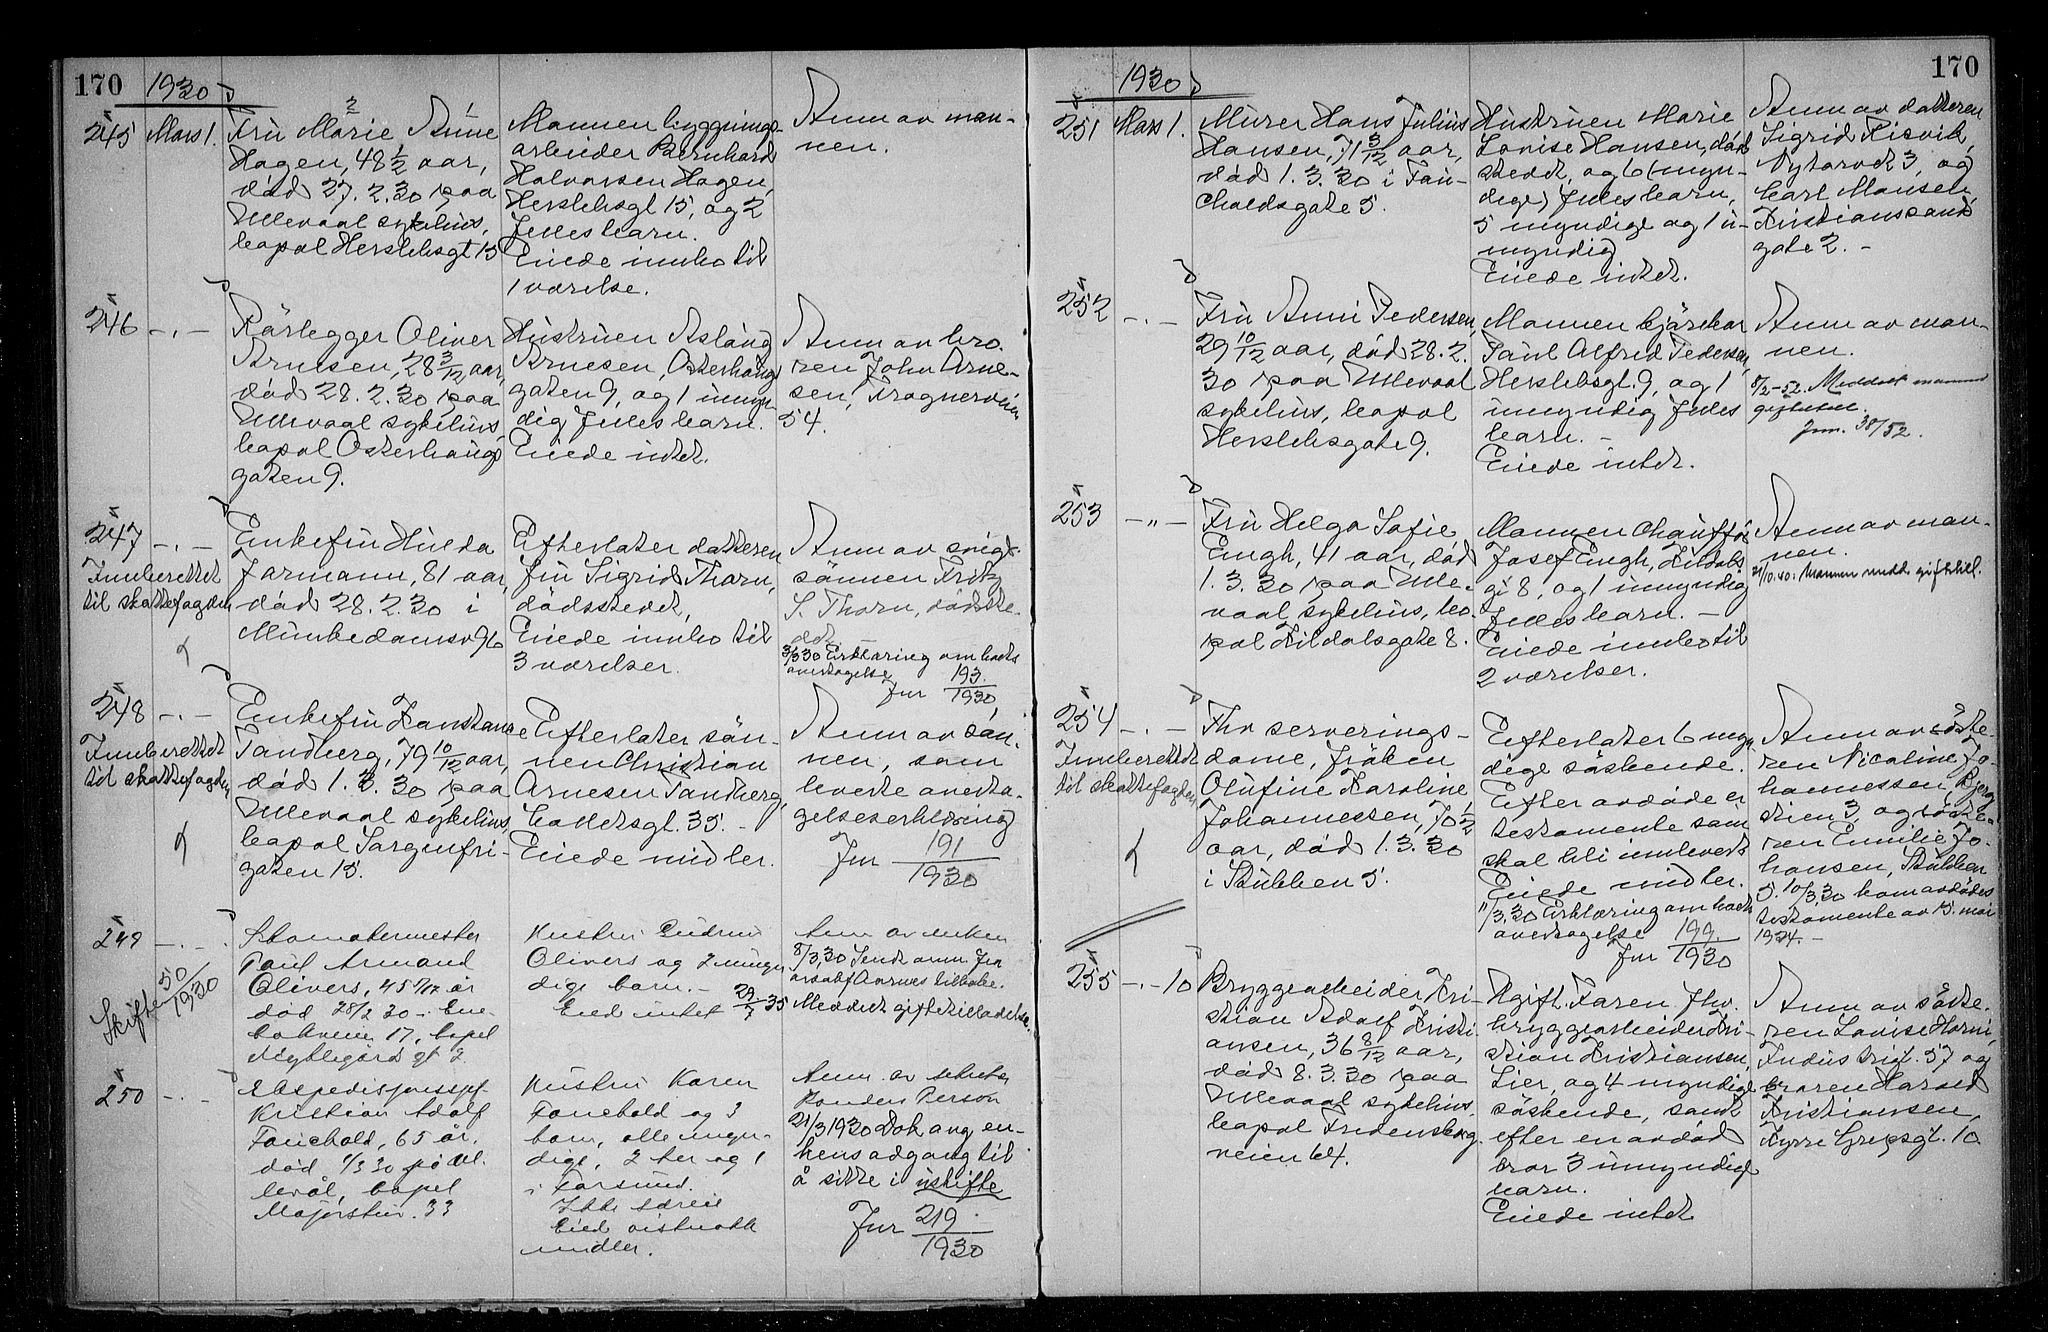 170
1930
245
Mars 1.
Fru Marie Anne
Hagen, 48 1/2 aar,
död 27.2.30 paa
Ullevaal sykehus,
bopol Herslebsgt 15
Mannen bygnings-
arbeider Bernhard
Halvorsen Hagen,
Herslebsgt 15, og 2
felles barn.
Eiede innbo til
1 værelse.
Anm av man-
nen.
246
-.-
Rörlegger Oliver
Arnesen, 28 3/12 aar,
död 28.2.30 paa
Ullevaal sykehus,
bopol Osterhaugs
gaten 9.
Hustruen Aslaug
Arnesen, Osterhaugs
gaten 9, og 1 umyn
dig felles barn.
Eiede intet.
Anm av bro.
ren John Arne-
sen, Frognerveien
54.
247
-.-
Innberettet
til skattefogden
Enkefru Hulda
Jarmann, 81 aar,
död 28.2.30 i
Munkedamsv 96
Efterlater datteren
fru Sigrid Thorn,
dödsstedet,
Eiede innbo til
3 værelser.
Anm av svige-
sönnen Fritz
S. Thorn, dödsste-
det. -
3/3 30 Erklæring om boets
overtagelse
Jnr 193/1930
248
-.-
Innberettet
til skattefogden
Enkefru Konstanse
Tandberg, 79 10/12 aar,
död 1.3.30 paa
Ullevaal sykehus
bopol Sorgenfri-
gaten 15.
Efterlater sön-
nen Christian
Arnesen Tandberg,
Eiede midler.
Anm av sön.
nen, som
leverte overta-
gelseserklæring
Jnr 191/1930
249
-.-
Skifte 50/1930
Skomakermester
Paul Armand
Olivers, 45 år
död 28/2 30 -
17, bopel
Hustru Gudrun
Olivers og 2 myn
dige barn. -
Eied intet
Anm av enken
8/3.30 Sendt anm fra
29/7 35
Meddelt giftetilladelse.
250
-.-
Ekspedisjonssjef
Kristian Adolf
Fonehold, 65 år,
död 1/3 30 på Ul.
levål, bopel
Majorstuv. 33
Hustru Karen
Fonehold og 3
barn, alle myn-
dige, 2 her og 1
i Farsund.
Ikke særeie
Eied
midler.
Anm. av
21/3 1930 Dok ang en-
kens adgang til
å sitte i uskifte
Jnr 219/1930
170
1930
251
Mars 1.
Murer Hans Julius
Hansen, 71 3/12 aar,
död 1.3.30 i Fau-
choldsgate 5.
Hustruen Marie
Lovise Hansen, död
stedet, og 6 (myn-
dige) felles barn,
5 myndige og 1 u-
myndig
Eiede intet.
Anm av datteren
Sigrid Risvik,
Nytorvet 3, og
Carl Monsen
Kristiansand
gate 2. -
252
-.-
Fru Anni Pedersen,
29 10/12 aar, död 28.2.
30 paa Ullevaal
sykehus, bopol
Herslebsgate 9.
Mannen kjörekar
Paul Alfred Pedersen,
Herslebsgt. 9, og 1
umyndig felles
barn. -
Eiede intet.
Anm av man-
nen.
8/2-52. Meddelt mannen
giftetill.
Jnr. 38/52.
253
-"-
Fru Helga Sofie
Engh, 41 aar, död
1.3.30 paa Ulle-
vaal sykehus, bo-
pol Lildalsgate 8.
Mannen chaufför
Josef Engh, Lildals
gt 8, og 1 umyndig
felles barn. -
Eiede innbo til
2 værelser.
Anm av man-
nen.
21/10.40: Mannen medd. giftetill.
254
-.-
Innberettet
til skattefogden
Fhv serverings-
dame, fröken
Olufine Karoline
Johannessen, 70 1/2
aar, död 1.3.30
i Stubben 5.
Efterlater 6 myn
dige söskende.
Efter avdöde er
testamente som
skal bli innlevert
Eiede midler.
11/3.30 Erklæring om boets
overtagelse
Jnr 199/1930
Anm av söste-
ren Nicoline Jo-
hannessen, Bjerg
stien 3, og söste-
ren Emilie Jo-
hansen, Stubben
5. 10/3.30 kom avdödes
testamente av 15. mai
1924. -
255
-.- 10
Bryggearbeider Kri-
stian Adolf Kristi-
ansen, 36 8/12 aar,
död 8.3.30 paa
Ullevaal sykehus,
bopol Fredensborg.
veien 64.
Ugift. Faren fhv.
bryggearbeider Kri-
stian Kristiansen,
Lier, og 4 myndige
söskende, samt
efter en avdöd
bror 3 umyndige
barn.
Eiede intet
Anm av söste-
ren Lovise Horni,
Industrigt. 57 og
broren Harald
Kristiansen,
Kyrre Grepsgt. 10